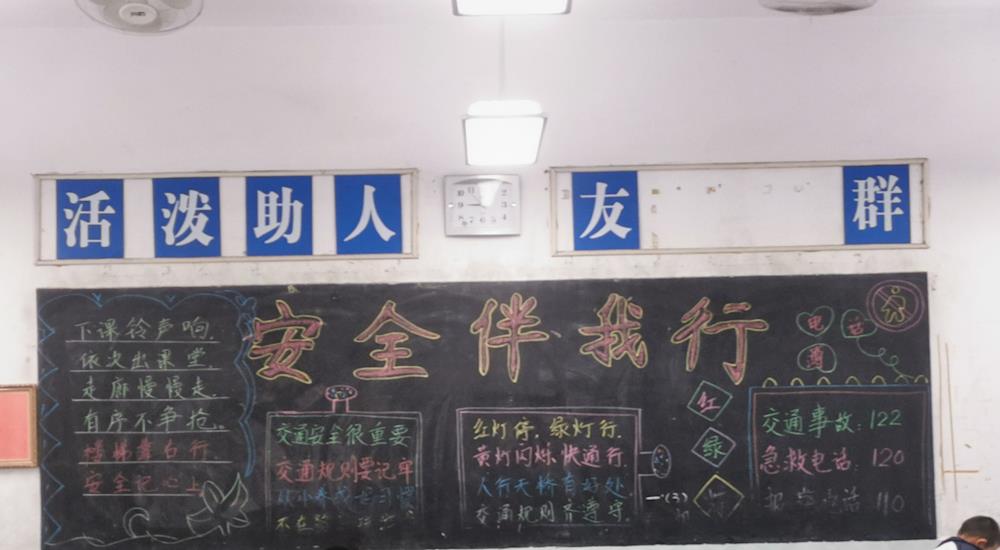 活泼助人
友
群
安全伴我行
下课铃声响,
依次出课堂.
走廊慢慢走.
有序不争抢。
楼梯靠右行
安全记心上
交通安全很重要
交通规则要记牢
红灯停,绿灯行.
黄灯闪烁快通行
人行天桥有好处
交通规则齐遵守
一(3)
红
绿
电
话
交通事故:122
急救电话:120
报警电话 110